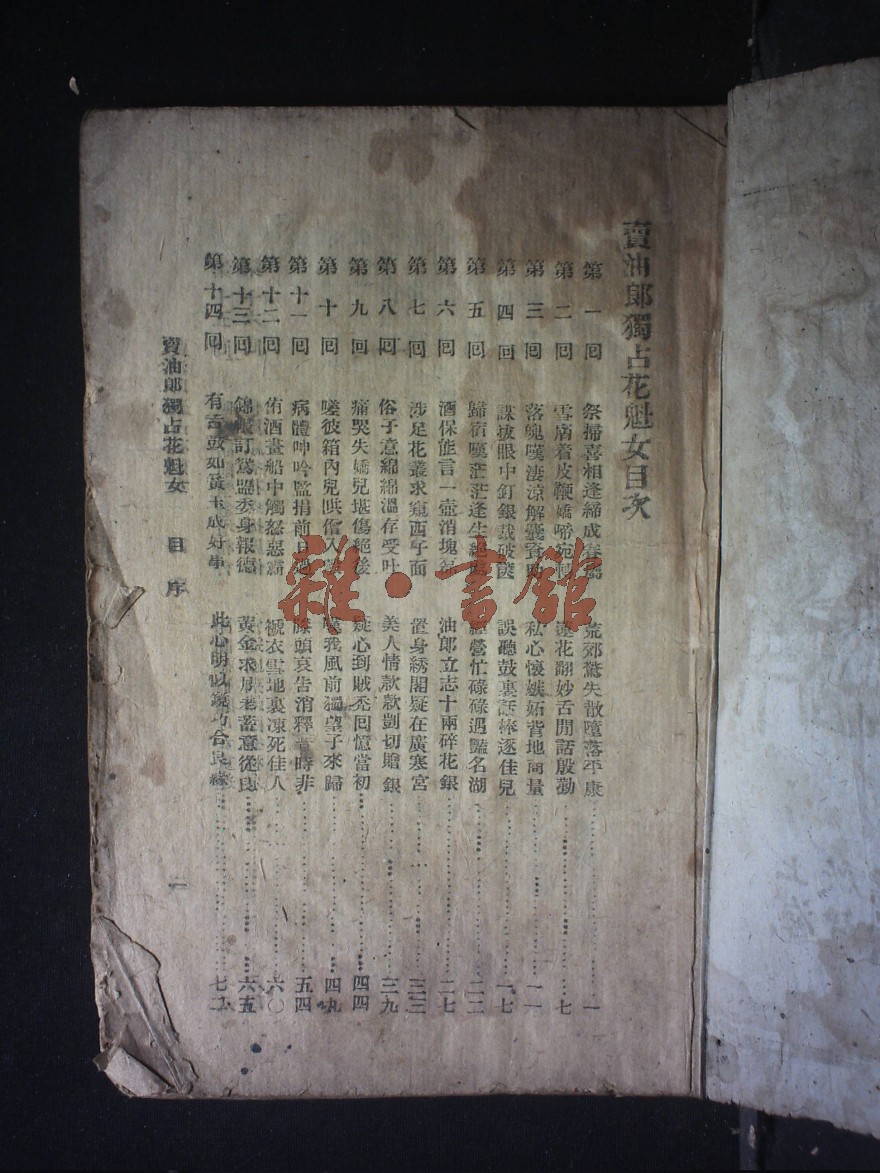 賣油郎獨占花魁女目次
第一回 祭掃喜相逢締成 荒郊驚失散墮落平康 一
第二回 雪膚着皮鞭嬌啼宛 蓮花翻妙舌閒話殷勤 七
第三回 落魄嘆淒涼解囊資助 私心懷嫉妬背地商量 一一
第四回 謀拔眼中釘銀裁破 誤聽鼓裏話棒逐佳兒 一七
第五回 歸宿嘆茫茫逢生絕 經營忙碌碌遇豔名湖 二二
第六回 酒保能言一壺消塊 油郎立志十兩碎花銀 二七
第七回 涉足花叢求窺西子面 置身綉閣疑在廣寒宮 三三
第八回 俗子意綿綿溫存受吐 美人情款款剴切贈銀 三九
第九回 痛哭失嬌兒堪傷絕後 疑心到賊禿回憶當初 四四
第十回 嗟彼箱內兒 僧入 嘆我風前獨望子來歸 四九
第十一回 病體呻吟監捐前日 牀頭哀告消釋當時非 五四
第十二回 侑酒畫船中觸怒惡霸 襪衣雪地裏凍死佳人 六〇
第十三回 錦 訂鴛盟委身報德 黃金求 巷蓄意從良 六五
第十四回 有舌 如 成好事 此心明似鏡巧合良緣 七二
賣油郎獨占花魁女 目序 一
雜·書館